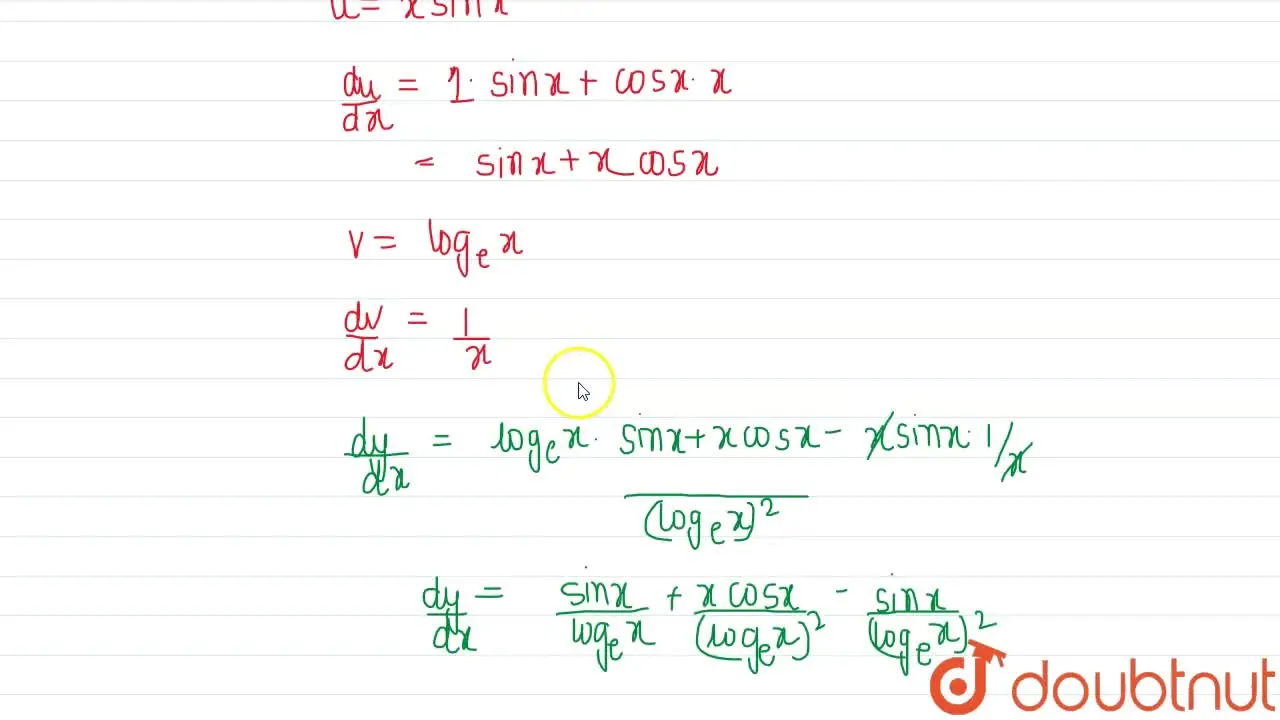 u = x sin x
du/dx = 1· sin x + cos x · x
= sin x + x cos x
v = logₑ x
dv/dx = 1/x
dy/dx = logₑ x · sin x + x cos x − x sin x · 1/x
(logₑ x)²
dy/dx = sin x/logₑ x + x cos x/(logₑ x)² − sin x/(logₑ x)²
doubtnut